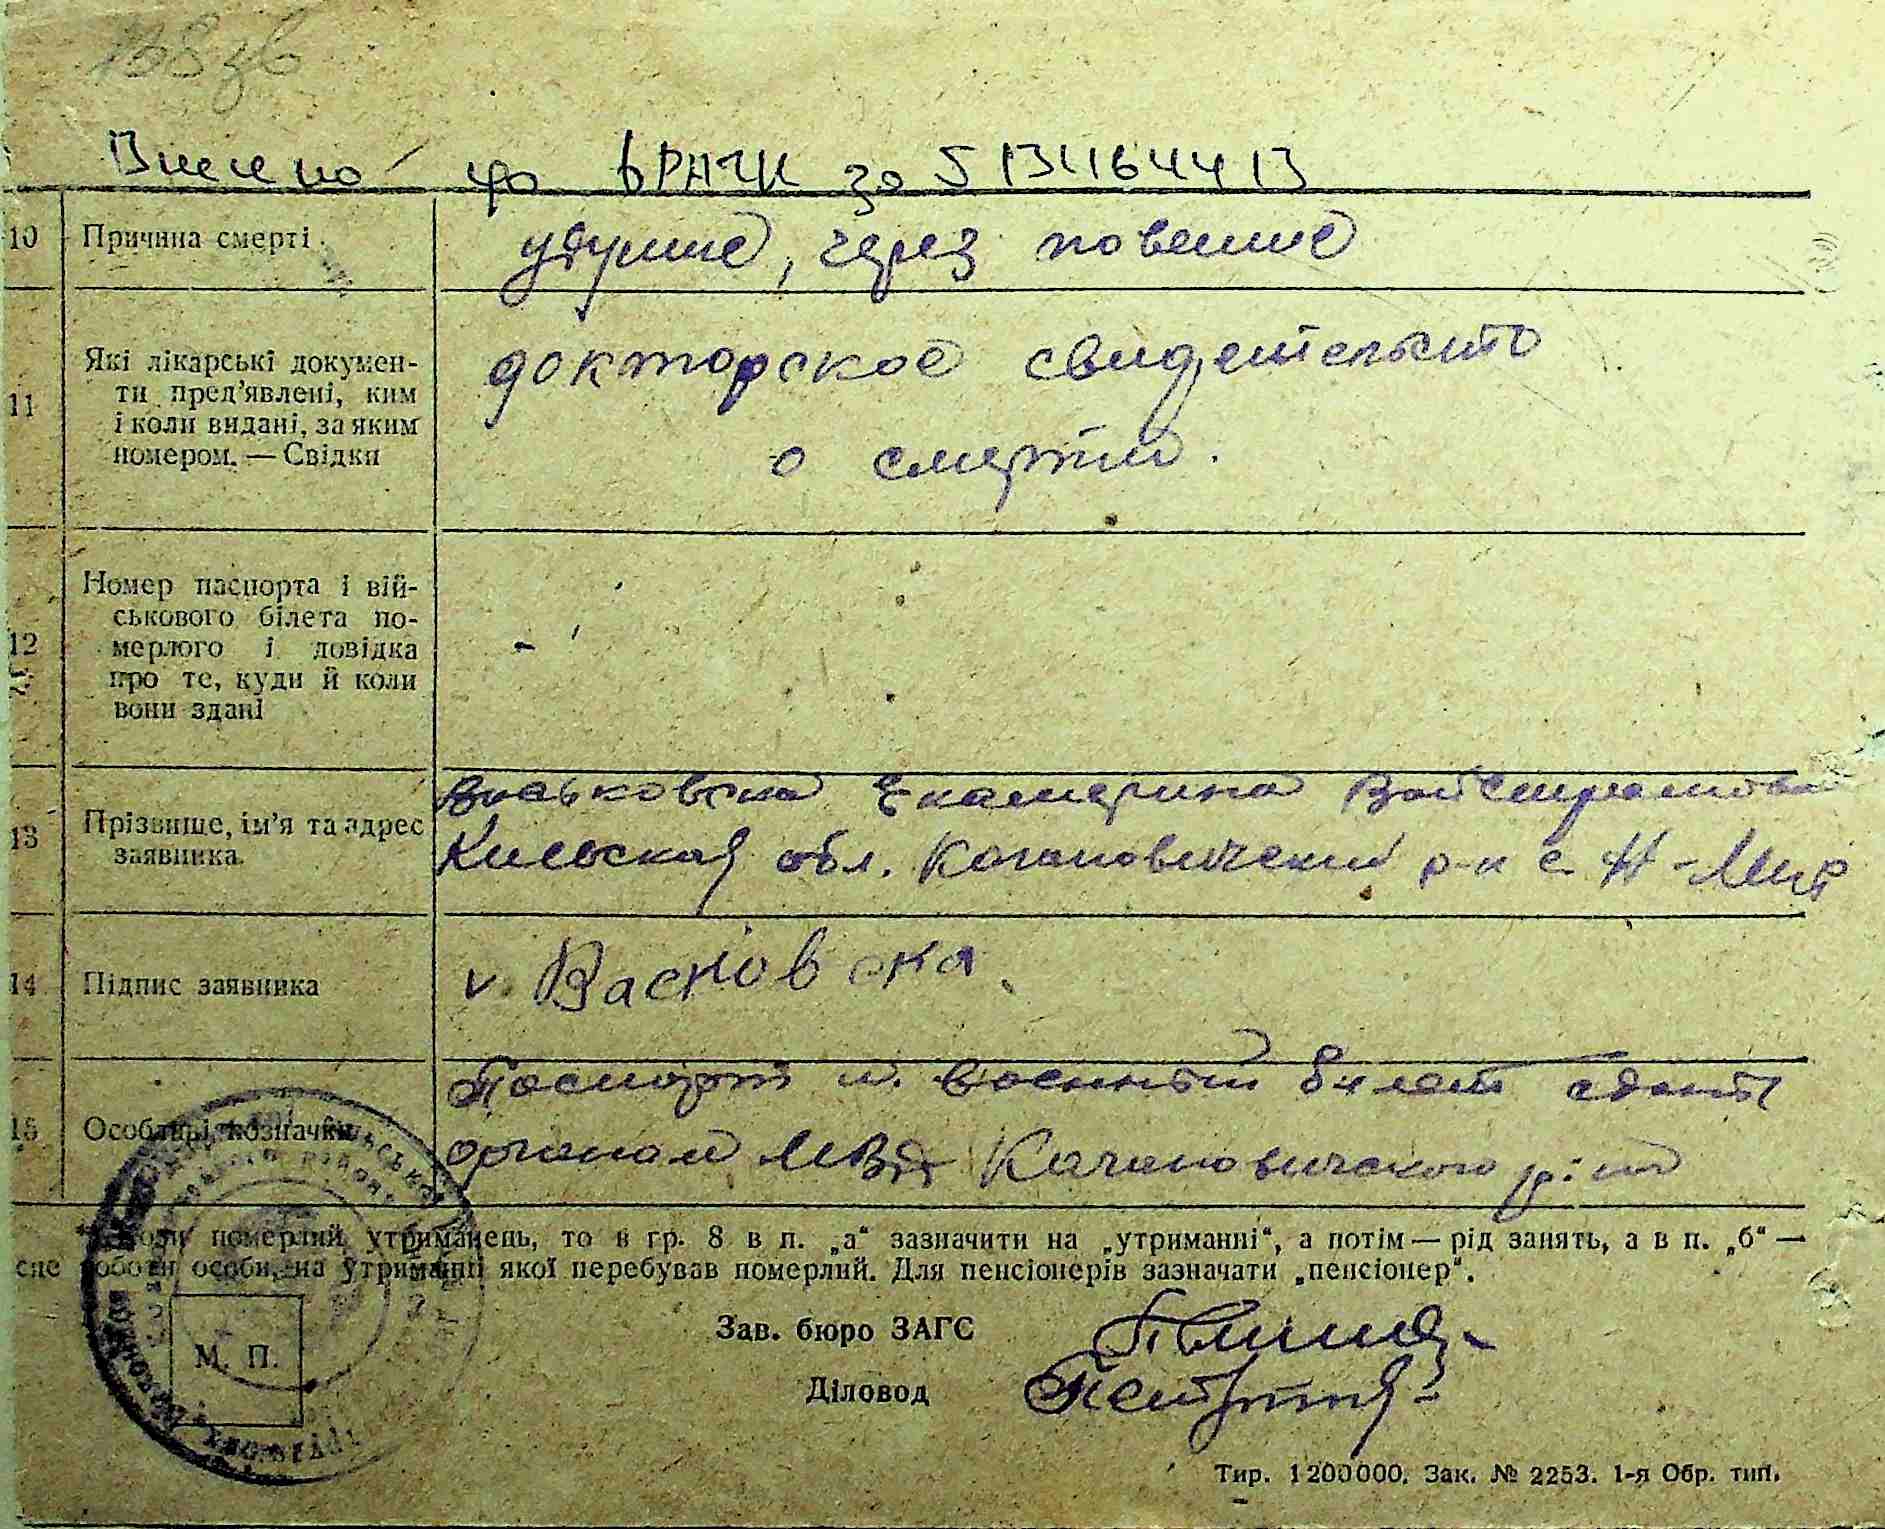 Внесено до ЕРНЧК за 5 13
10 Причина смерті удушие, через повешие
11 Які лікарські докумен-
ти пред'явлені, ким
і коли видані, за яким
номером. — Свідки
докторское свидетельство
о смерти.
12 Номер паспорта і вій-
ськового білета по-
мерлого і довідка
про те, куди й коли
вони здані
-
13 Прізвище, ім'я та адрес
заявника
Васьковска Екатерина
Киевская обл. Кагановический р-н с. Н-Мир
14 Підпис заявника v. Васковска
15 Особливі позначки
Паспорт и военный билет сданы
органам МВД Кагановичского
коли померлий утриманець, то в гр. 8 в п. „а“ зазначити на „утриманні“, а потім — рід занять, а в п. „б“ —
сце роботи особи, на утриманні якої перебував померлий. Для пенсіонерів зазначати „пенсіонер“.
Зав. бюро ЗАГС
Діловод
М. П.
Тир. 1200000. Зак. № 2253. 1-я Обр. тип.